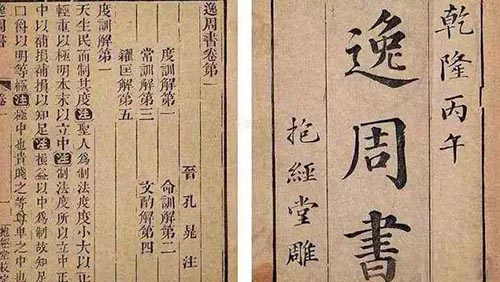 乾隆丙午
逸周書
抱經堂雕
逸周書卷第一
晉孔晁注
度訓解第一 命訓解第二
常訓解第三 文酌解第四
糴匡解第五
度訓解第一
天生民而制其度注聖人爲制法度度小大以正
輕重以極明本末以立中注制法度所以立中正
中以補損補損以知足注損益以中爲制故知足
爵以明等極注極中也貴賤之等尊卑之中也